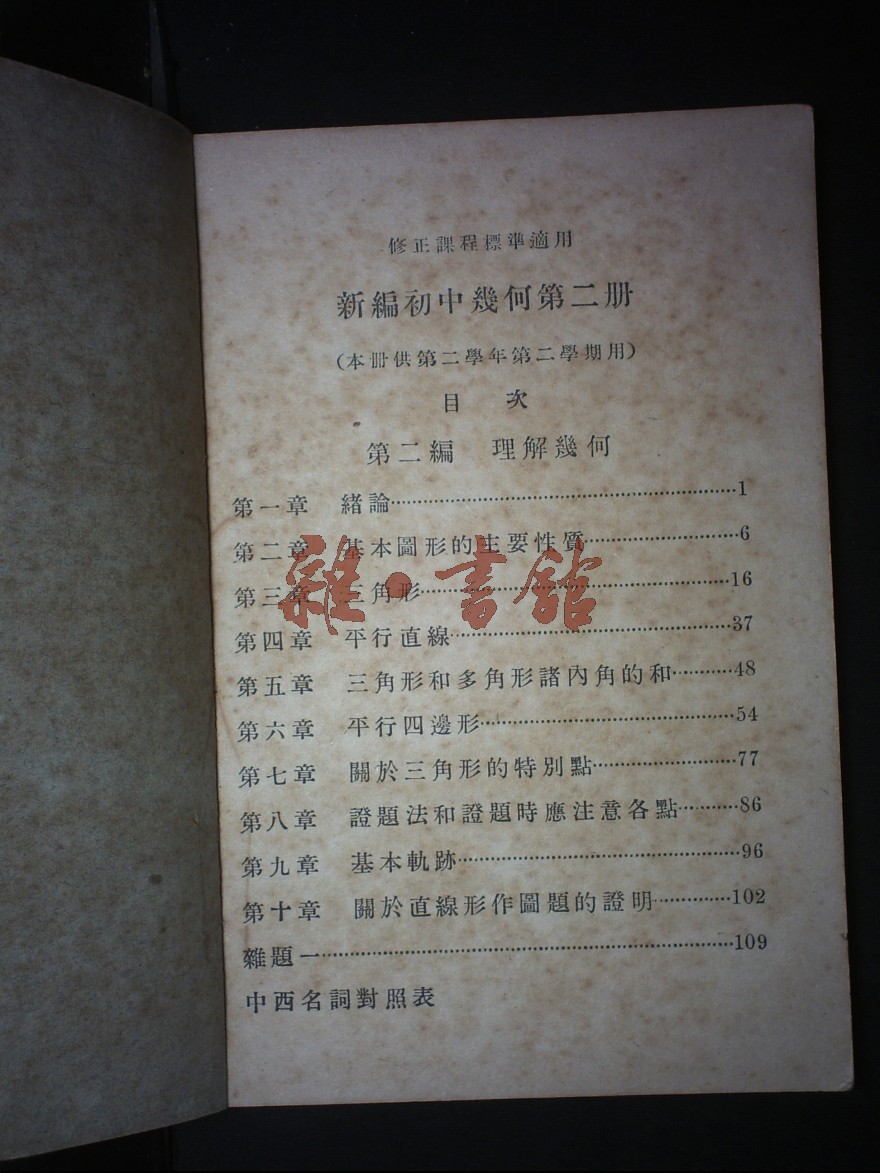 修正課程標準適用
新編初中幾何第二册
(本册供第二學年第二學期用)
目 次
第二編 理解幾何
第一章 緒論…………1
第二章 基本圖形的主要性質…………6
第三章 三角形…………16
第四章 平行直線…………37
第五章 三角形和多角形諸內角的和…………48
第六章 平行四邊形…………54
第七章 關於三角形的特別點…………77
第八章 證題法和證題時應注意各點…………86
第九章 基本軌跡…………96
第十章 關於直線形作圖題的證明…………102
雜題一…………109
中西名詞對照表
雜·書館